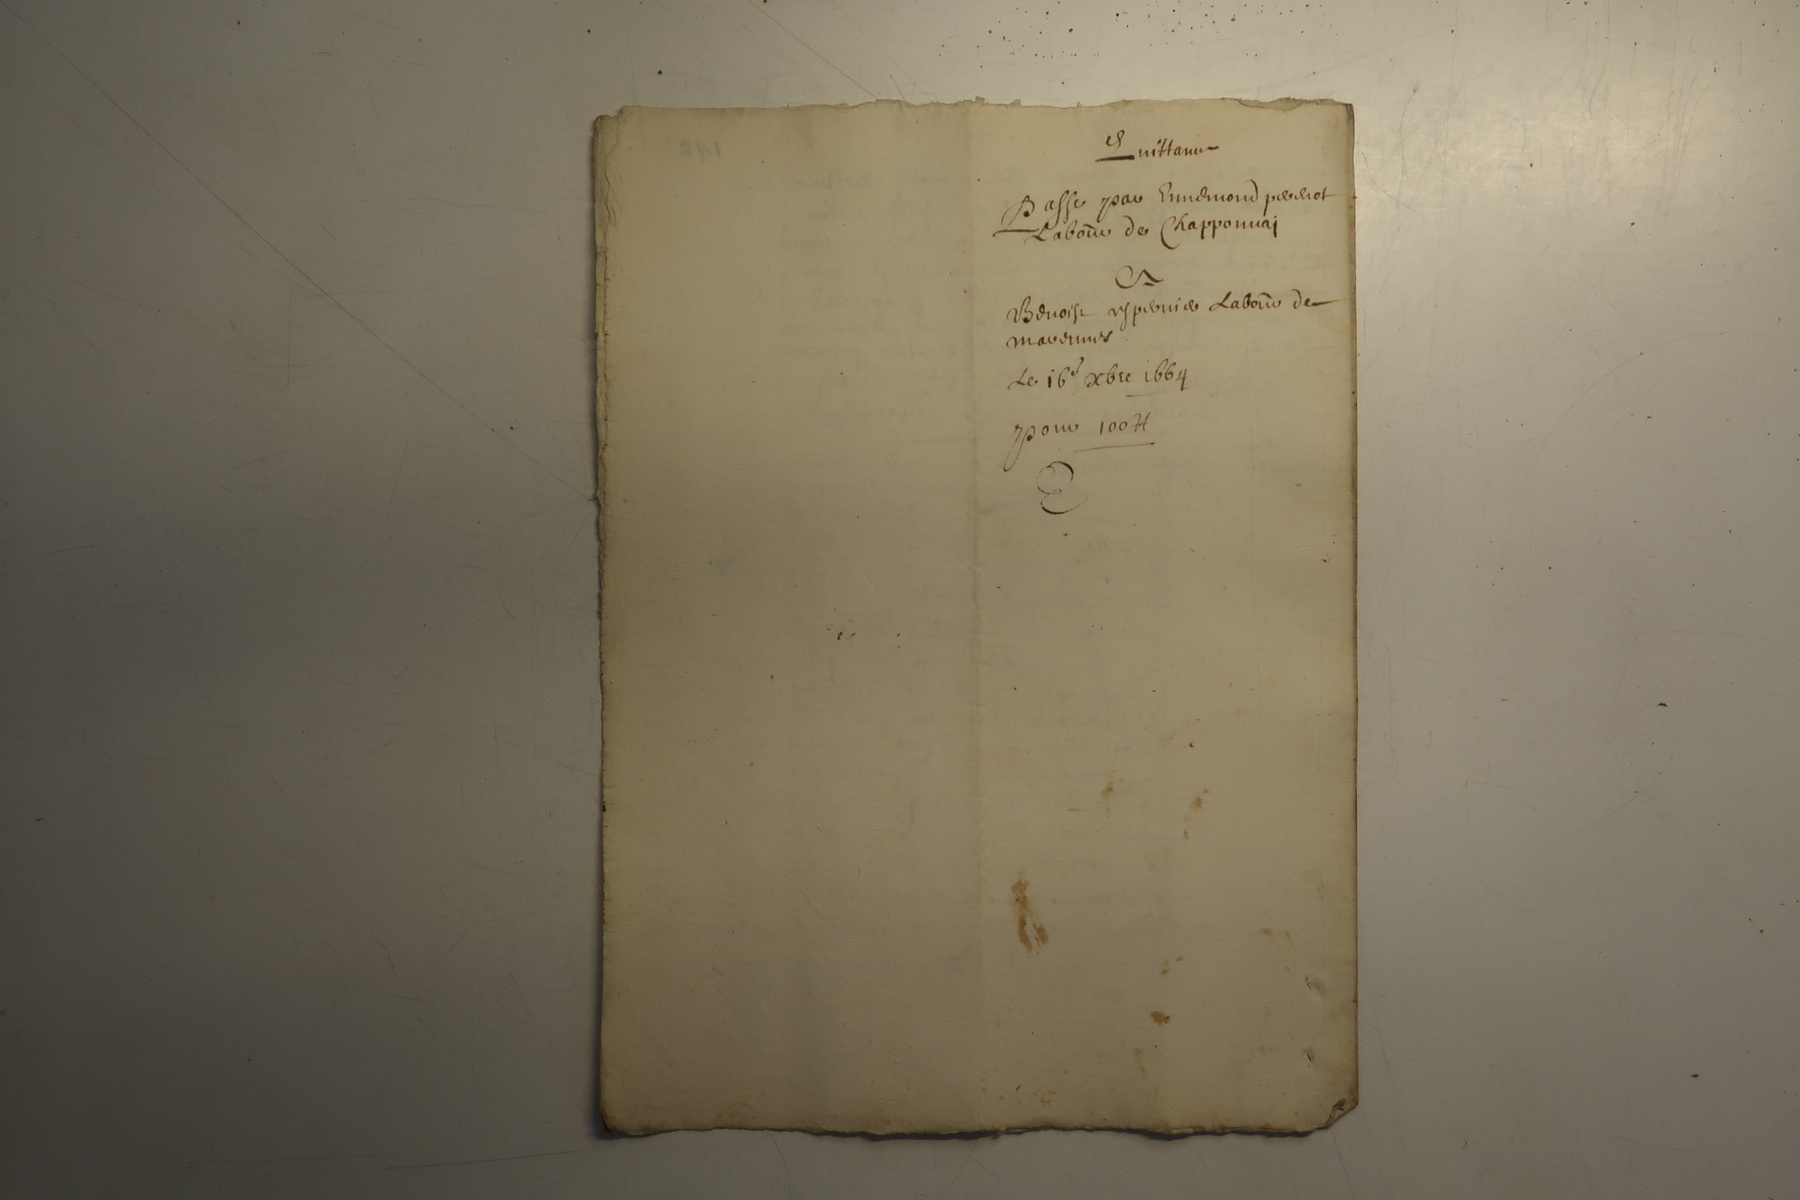 Quittance
Passe par Ennemond perrot
Labour de Chapponnai
A
Benoist Labour de
marennes
Le 16e xbre 1664
pour 100 ℔